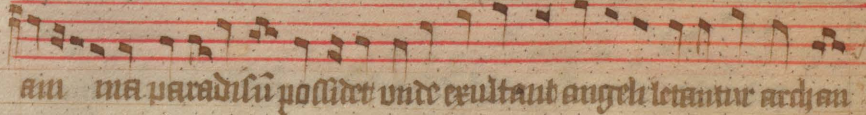 am ma paradisū possidet vnde exultant angeli letantur archan